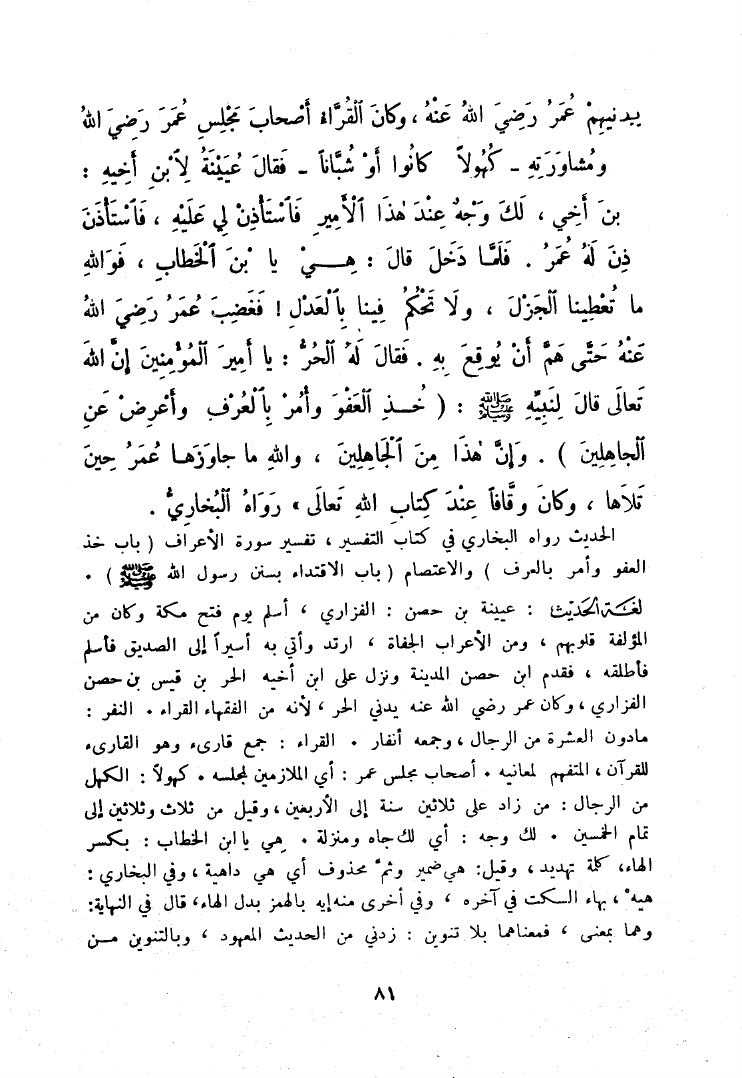 يدنيهِمْ عُمَرُ رَضِيَ اللهُ عَنْهُ ، وكانَ ٱلْقُرَّاءُ أَصْحابَ مَجْلِسِ عُمَرَ رَضِيَ اللهُ
ومُشاوَرَتِهِ - كُهُولاً كانُوا أَوْ شُبَّاناً - فَقالَ عُيَيْنَةُ لِٱبْنِ أَخِيهِ :
بنَ أَخِي ، لَكَ وَجْهٌ عِنْدَ هٰذَا ٱلْأَمِيرِ فَٱسْتَأْذِنْ لِي عَلَيْهِ ، فَٱسْتَأْذَنَ
ذِنَ لَهُ عُمَرُ . فَلَمَّا دَخَلَ قالَ : هِيْ يا بْنَ ٱلْخَطابِ ، فَوَاللهِ
ما تُعْطِينا ٱلْجَزْلَ ، ولَا تَحْكُمُ فِينا بِٱلْعَدْلِ ! فَغَضِبَ عُمَرُ رَضِيَ اللهُ
عَنْهُ حَتَّى هَمَّ أَنْ يُوقِعَ بِهِ . فَقالَ لَهُ ٱلْحُرُّ : يا أَمِيرَ ٱلْمُؤْمِنِينَ إِنَّ اللهَ
تَعالَى قالَ لِنَبِيِّهِ ﷺ : ( خُذِ ٱلْعَفْوَ وأْمُرْ بِٱلْعُرْفِ وأَعْرِضْ عَنِ
ٱلْجاهِلِينَ ) . وَإِنَّ هٰذَا مِنَ ٱلْجَاهِلِينَ ، واللهِ ما جاوَزَها عُمَرُ حِينَ
تَلَاها ، وكانَ وقَّافاً عِنْدَ كِتابِ اللهِ تَعالَى » رَوَاهُ ٱلْبُخارِيُّ .
الحديث رواه البخاري في كتاب التفسير ، تفسير سورة الأعراف ( باب خذ
العفو وأمر بالعرف ) والاعتصام ( باب الاقتداء بسنن رسول الله ﷺ ) .
لغة الحديث : عيينة بن حصن : الفزاري ، أسلم يوم فتح مكة وكان من
المؤلفة قلوبهم ، ومن الأعراب الجفاة ، ارتد وأتي به أسيراً إلى الصديق فأسلم
فأطلقه ، فقدم ابن حصن المدينة ونزل على ابن أخيه الحر بن قيس بن حصن
الفزاري ، وكان عمر رضي الله عنه يدني الحر ، لأنه من الفقهاء القراء . النفر :
مادون العشرة من الرجال ، وجمعه أنفار . القراء : جمع قارىء وهو القارىء
للقرآن ، المتفهم لمعانيه . أصحاب مجلس عمر : أي الملازمين لمجلسه . كهولاً : الكهل
من الرجال : من زاد على ثلاثين سنة إلى الأربعين ، وقيل من ثلاث وثلاثين إلى
تمام الخمسين . لك وجه : أي لك جاه ومنزلة . هي يا ابن الخطاب : بكسر
الهاء ، كلمة تهديد ، وقيل : هي ضمير وثمّ محذوف أي هي داهية ، وفي البخاري :
هيه ، بهاء السكت في آخره ، وفي أخرى منه إيه بالهمز بدل الهاء ، قال في النهاية :
وهما بمعنى ، فمعناهما بلا تنوين : زدني من الحديث المعهود ، وبالتنوين من
٨١